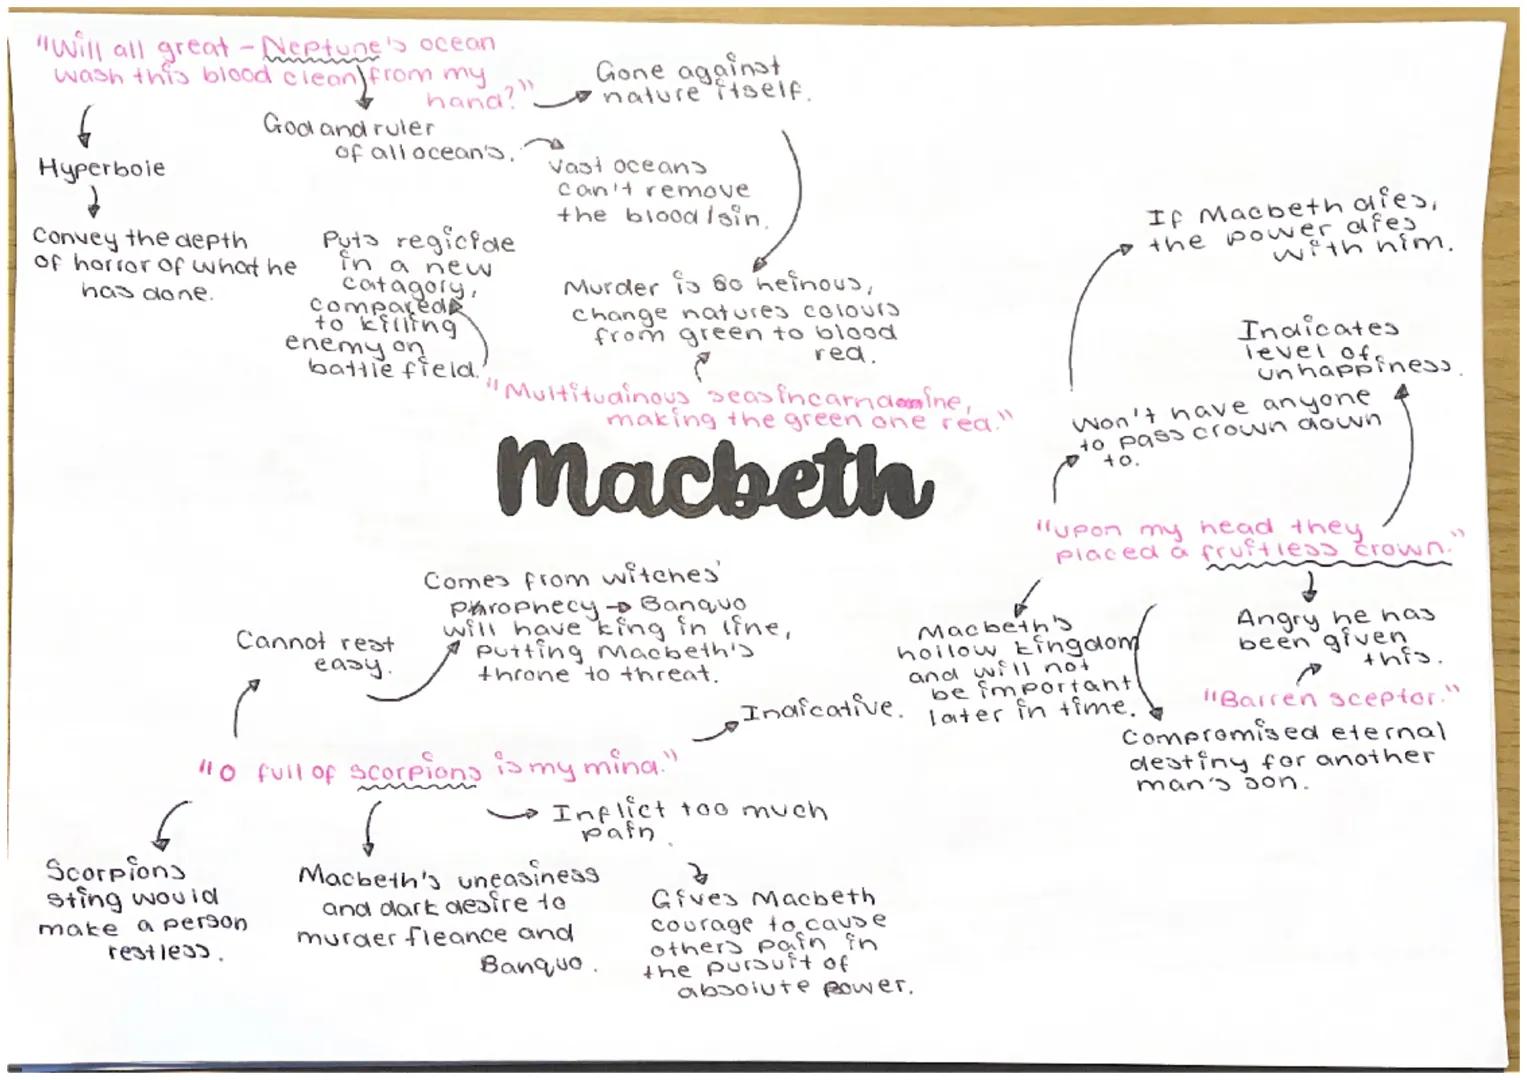 "Will all great - Neptune's ocean
wash this blood clean from my
hand?"
Gone against
nature itself.
God and ruler
of all ocean's.
Vast oceans
can't remove
the blood/sin.
Hyperbole
Convey the depth
of horror of what he
has done.
Puts regicide
in a new
catagory,
compared
to killing
enemy on
battle field.
Murder is so heinous,
change natures colours
from green to blood
red.
"Multitudinous seas incarnadine,
making the green one red."
If Macbeth dies,
the power dies
with him.
Indicates
level of
unhappiness.
Won't have anyone
to pass crown down
to.
Macbeth
"upon my head they
placed a fruitless crown."
Macbeth's
hollow kingdom
and will not
be important
later in time.
Angry he has
been given
this.
"Barren sceptor."
Compromised eternal
destiny for another
man's son.
Comes from witches'
phrophecy → Banquo
will have king in line,
putting Macbeth's
throne to threat.
Cannot rest
easy.
Indicative.
"O full of scorpions is my mind."
Inflict too much
pain.
Scorpions
sting would
make a person
restless.
Macbeth's uneasiness
and dark desire to
murder fleance and
Banquo.
Gives Macbeth
courage to cause
others pain in
the pursuit of
absolute power.